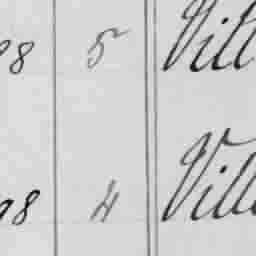 98 5 Vill
98 4 Vill